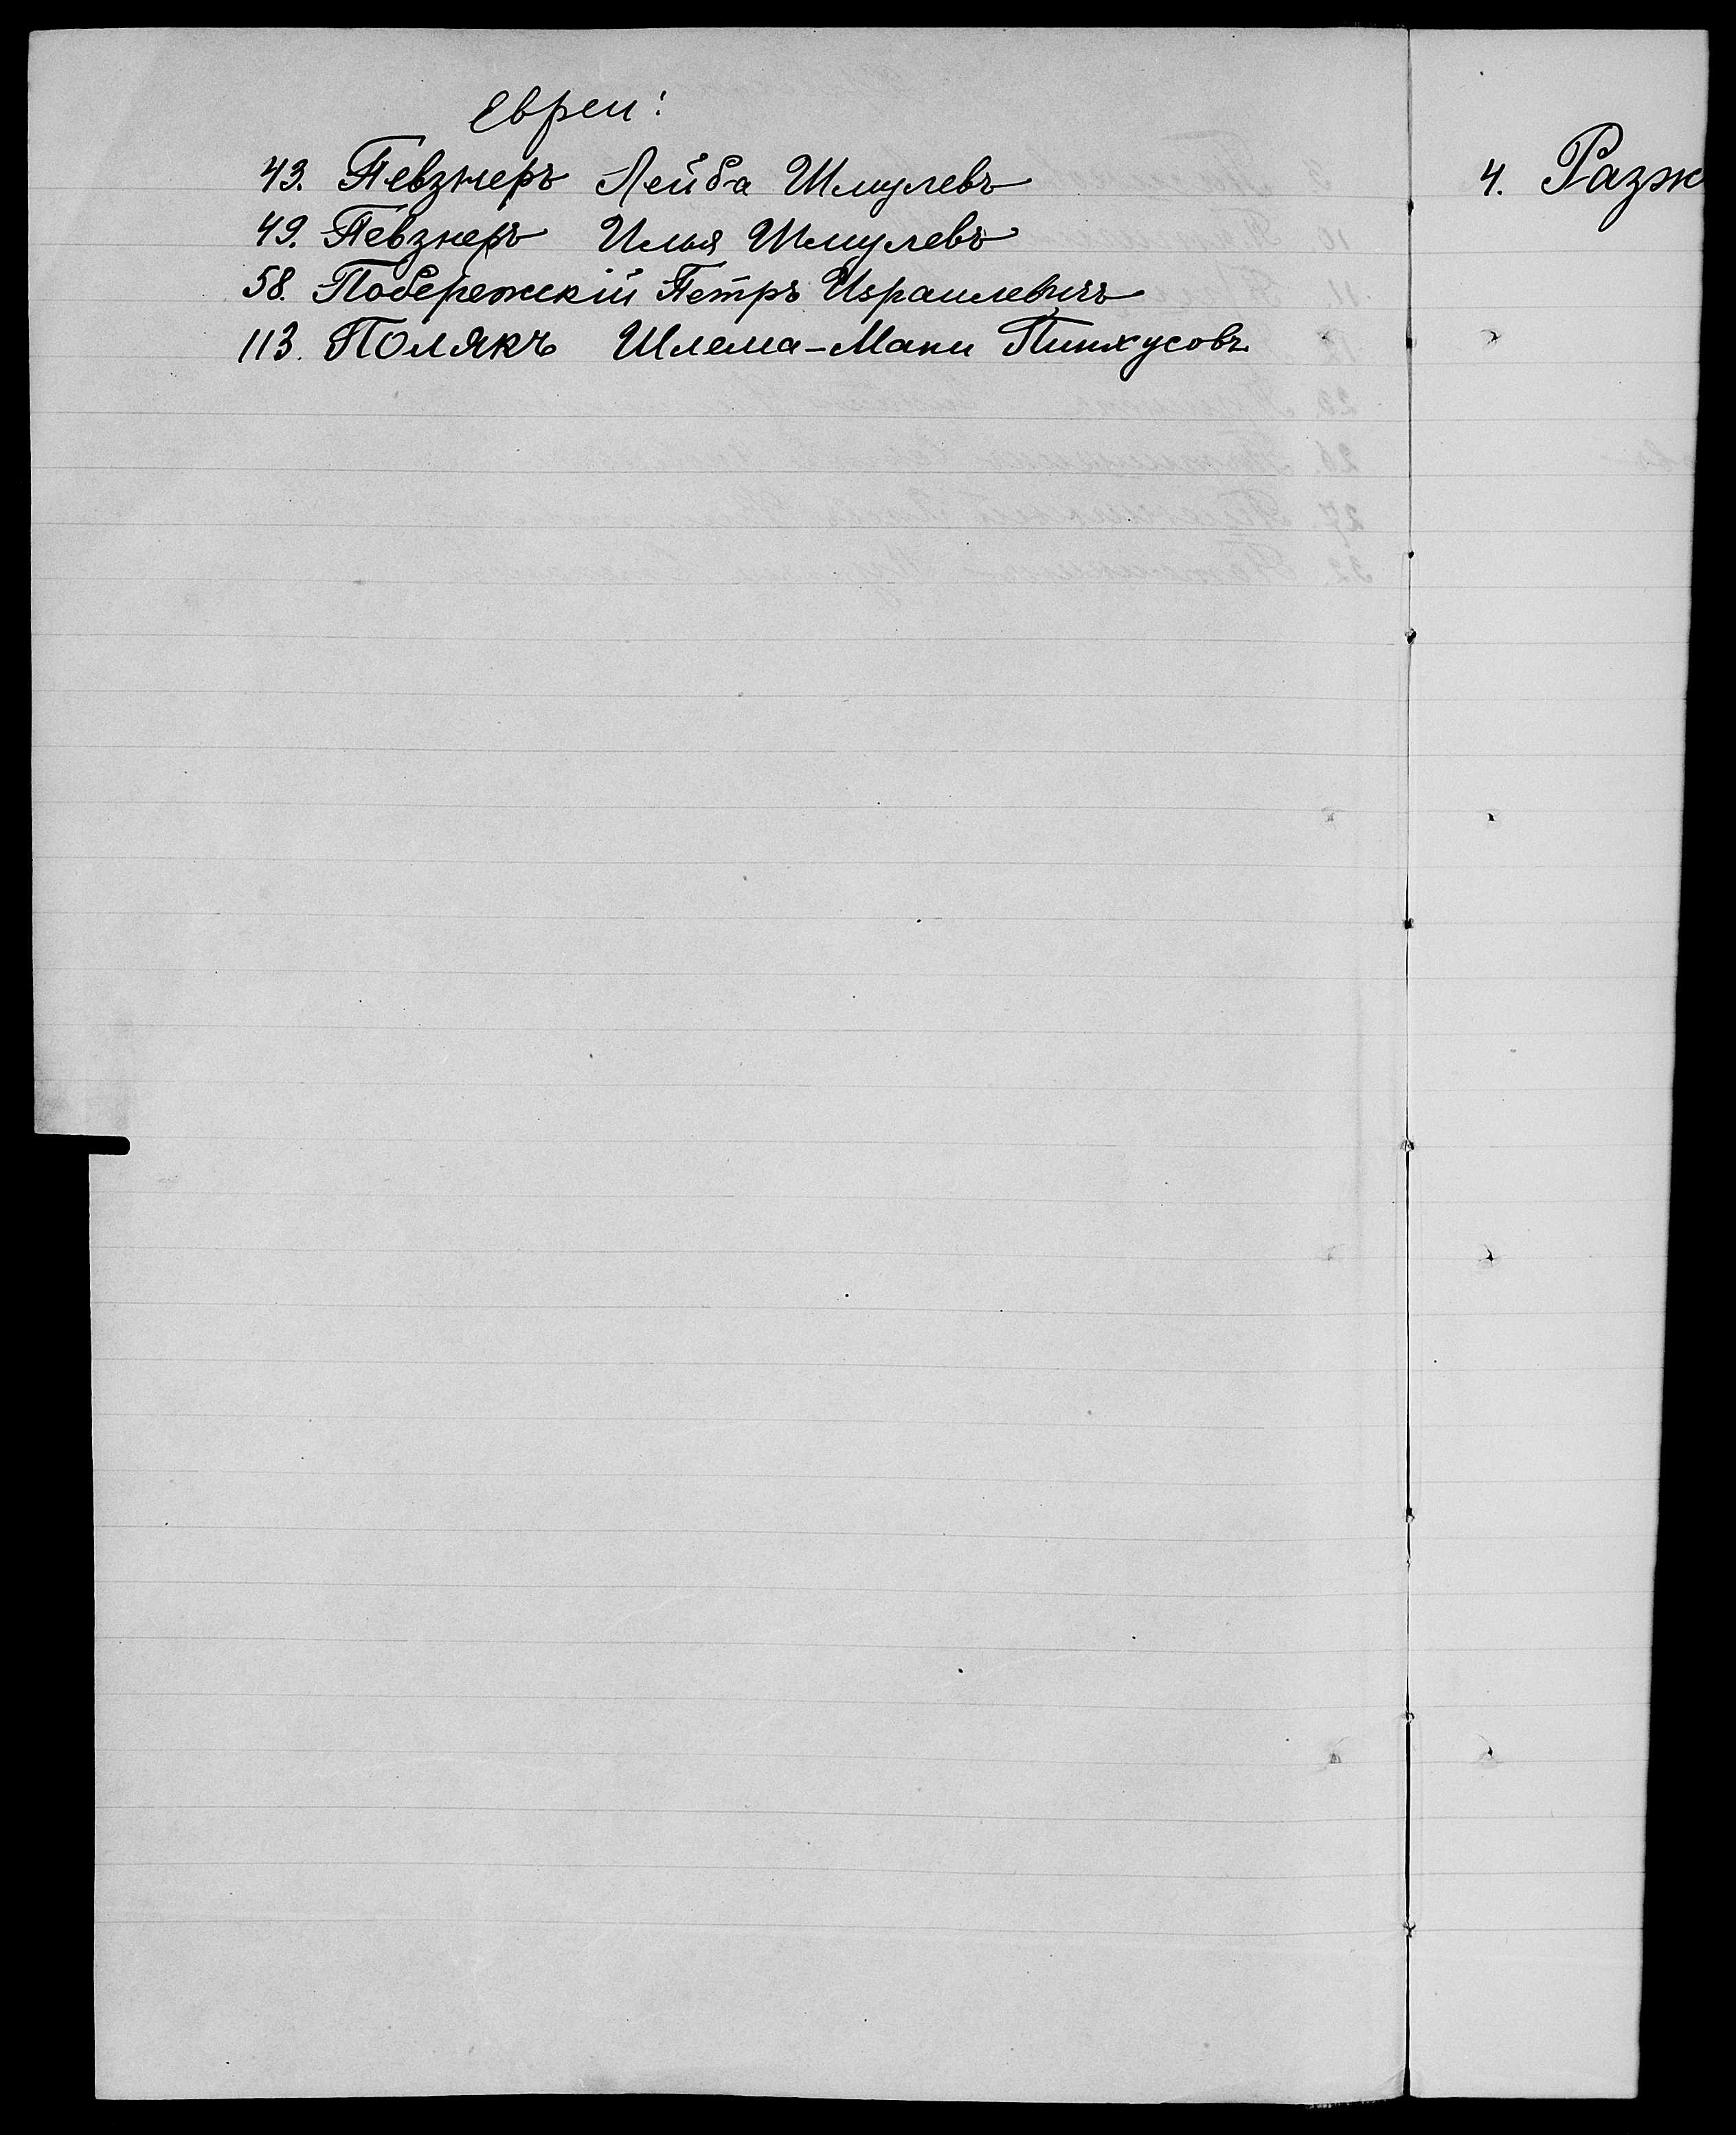 Евреи:
43. Певзнеръ Лейба Шмулевъ
49. Певзнеръ Илья Шмулевъ
58. Побережскій Петръ Израилевичъ
113. Полякъ Шлема-Мани Пинхусовъ
4. Разж